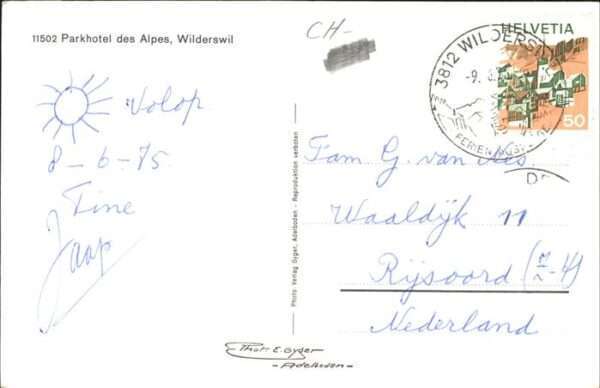 11502 Parkhotel des Alpes, Wilderswil
CH-
HELVETIA
50
3812 WILDERSWIL
-9. 6.
FERIEN
Volop
8-6-75
Tine
Jaap
Fam G. van Nes.
Waaldijk 11
Rijsoord (Z-H)
Nederland
Photo Verlag Gyger, Adelboden - Reproduktion verboten
Phot. E. Gyger
-Adelboden-